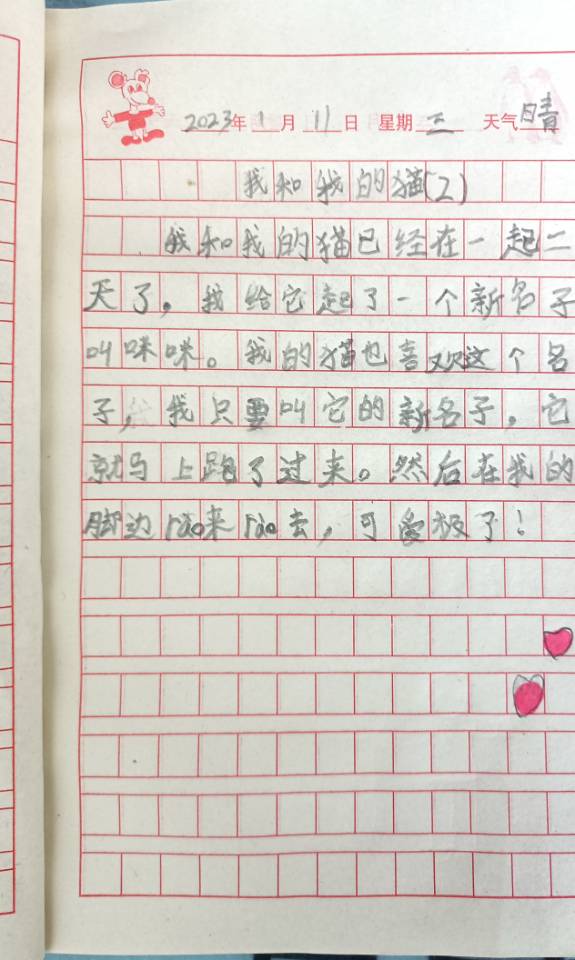 2023年1月11日 星期三 天气晴
我和我的猫(2)
我和我的猫已经在一起二
天了，我给它起了一个新名子
叫咪咪。我的猫也喜欢这个名
子，我只要叫它的新名子，它
就马上跑了过来。然后在我的
脚边rào来rào去，可爱极了！